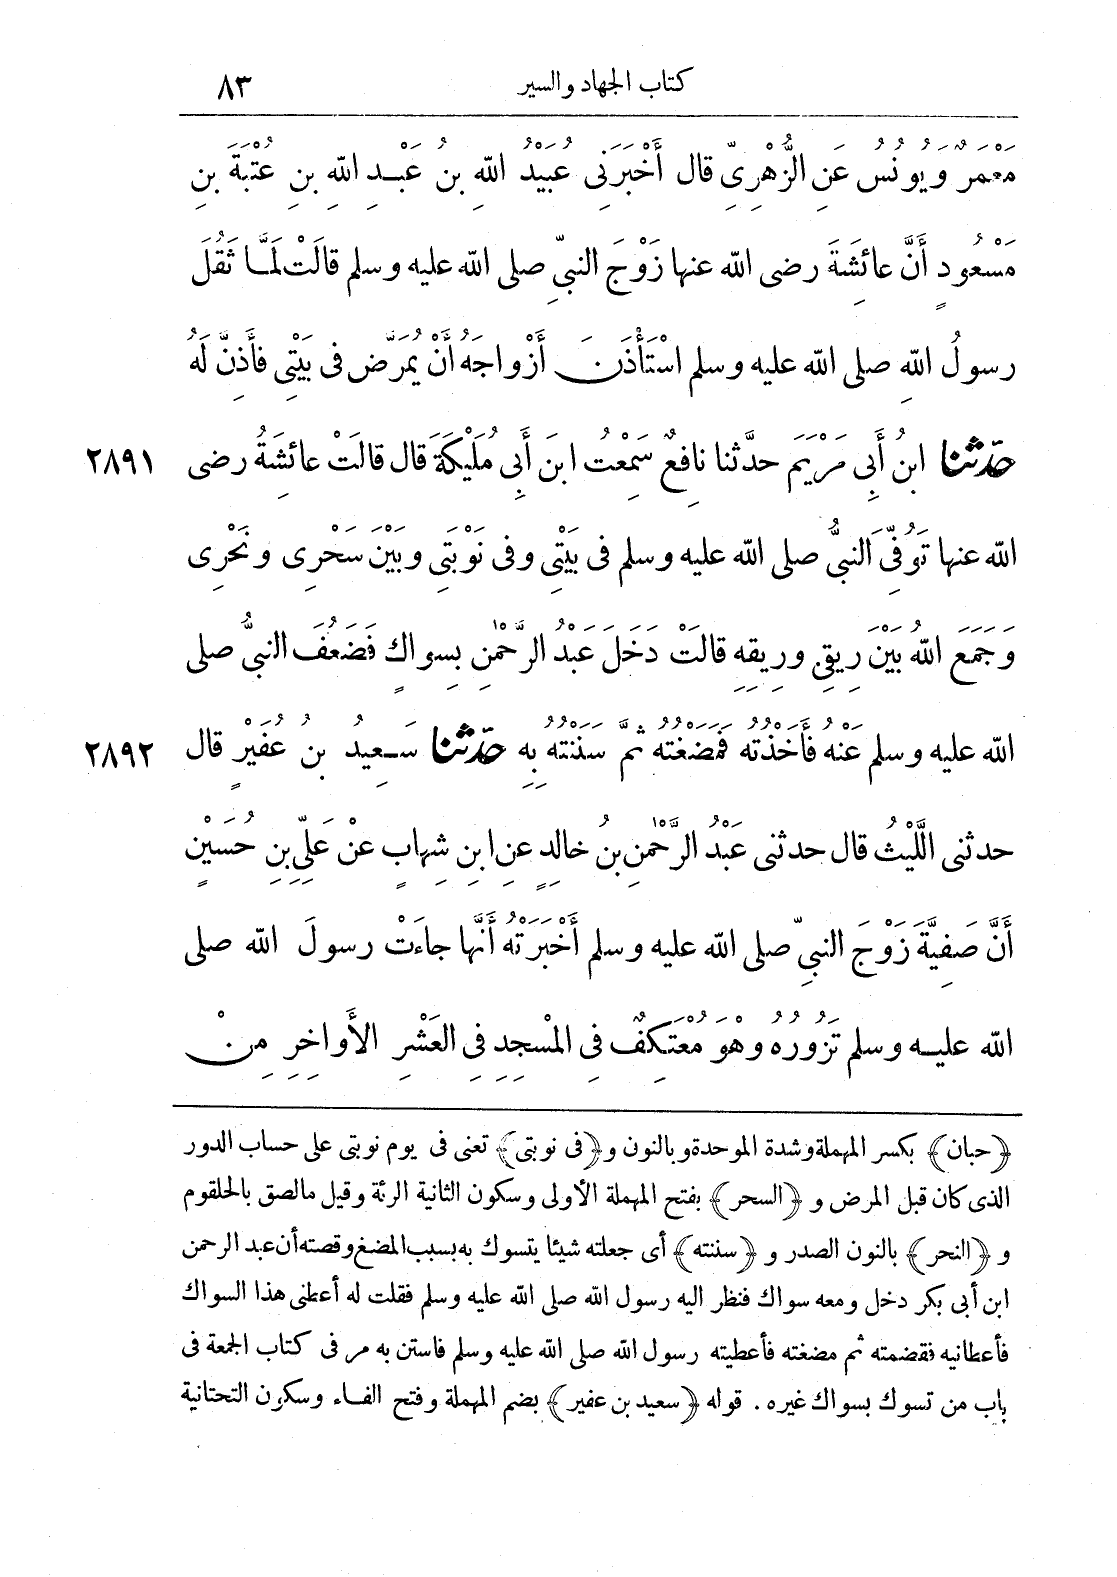 كتاب الجهاد والسير ٨٣
مَعْمَرٌ وَيُونُسُ عَنِ الزُّهْرِىِّ قال أَخْبَرَنِى عُبَيْدُ اللهِ بنُ عَبْدِ اللهِ بنِ عُتْبَةَ بنِ
مَسْعُودٍ أَنَّ عائِشَةَ رضى الله عنها زَوْجَ النبىِّ صلى الله عليه وسلم قالَتْ لَمَّا ثَقُلَ
رسولُ اللهِ صلى الله عليه وسلم اسْتَأْذَنَ أَزْواجَهُ أَنْ يُمَرَّضَ فى بَيْتِى فَأَذِنَّ لَهُ
٢٨٩١ حَدّثنا ابنُ أَبِى مَرْيَمَ حدَّثنا نافِعٌ سَمِعْتُ ابنَ أَبِى مُلَيْكَةَ قال قالَتْ عائِشَةُ رضى
الله عنها تُوُفِّىَ النبىُّ صلى الله عليه وسلم فى بَيْتِى وفى نَوْبَتِى وبَيْنَ سَحْرِى ونَحْرِى
وَجَمَعَ اللهُ بَيْنَ رِيقِى ورِيقِهِ قالَتْ دَخَلَ عَبْدُ الرَّحْمنِ بِسِواكٍ فَضَعُفَ النبىُّ صلى
٢٨٩٢ الله عليه وسلم عَنْهُ فَأَخَذْتُهُ فَمَضَغْتُهُ ثمَّ سَنَنْتُهُ بِهِ حَدّثنا سَعِيدُ بنُ عُفَيْرٍ قال
حدثنى اللَّيْثُ قال حدثنى عَبْدُ الرَّحْمنِ بنُ خالِدٍ عنِ ابنِ شِهابٍ عَنْ عَلِىِّ بنِ حُسَيْنٍ
أَنَّ صَفِيَّةَ زَوْجَ النبىِّ صلى الله عليه وسلم أَخْبَرَتْهُ أَنَّها جاءَتْ رسولَ الله صلى
الله عليه وسلم تَزُورُهُ وهْوَ مُعْتَكِفٌ فِى المَسْجِدِ فِى العَشْرِ الأَواخِرِ مِنْ
﴿حبان﴾ بكسر المهملة وشدة الموحدة وبالنون و﴿فى نوبتى﴾ تعنى فى يوم نوبتى على حساب الدور
الذى كان قبل المرض و ﴿السحر﴾ بفتح المهملة الأولى وسكون الثانية الرئة وقيل مالصق بالحلقوم
و ﴿النحر﴾ بالنون الصدر و ﴿سننته﴾ أى جعلته شيئا يتسوك به بسبب المضغ وقصته أن عبد الرحمن
ابن أبى بكر دخل ومعه سواك فنظر اليه رسول الله صلى الله عليه وسلم فقلت له أعطنى هذا السواك
فأعطانيه فقضمته ثم مضغته فأعطيته رسول الله صلى الله عليه وسلم فاستن به مر فى كتاب الجمعة فى
باب من تسوك بسواك غيره . قوله ﴿سعيد بن عفير﴾ بضم المهملة وفتح الفاء وسكون التحتانية